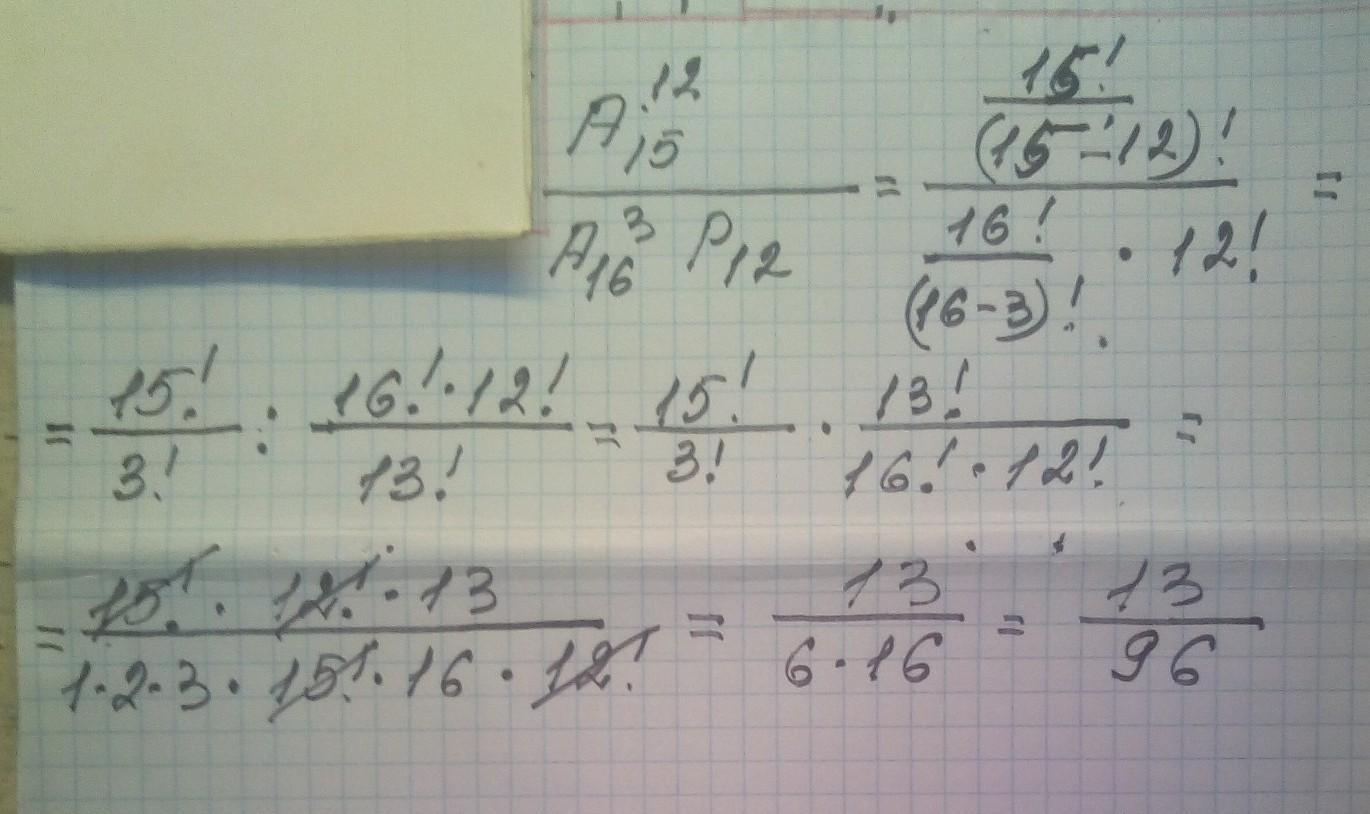 A₁₅¹² / (A₁₆³ P₁₂) = (15! / (15-12)!) / (16! / (16-3)! · 12!) =
= 15!/3! : (16! · 12!)/13! = 15!/3! · 13!/(16! · 12!) =
= (15! · 12! · 13)/(1·2·3 · 15! · 16 · 12!) = 13/(6·16) = 13/96